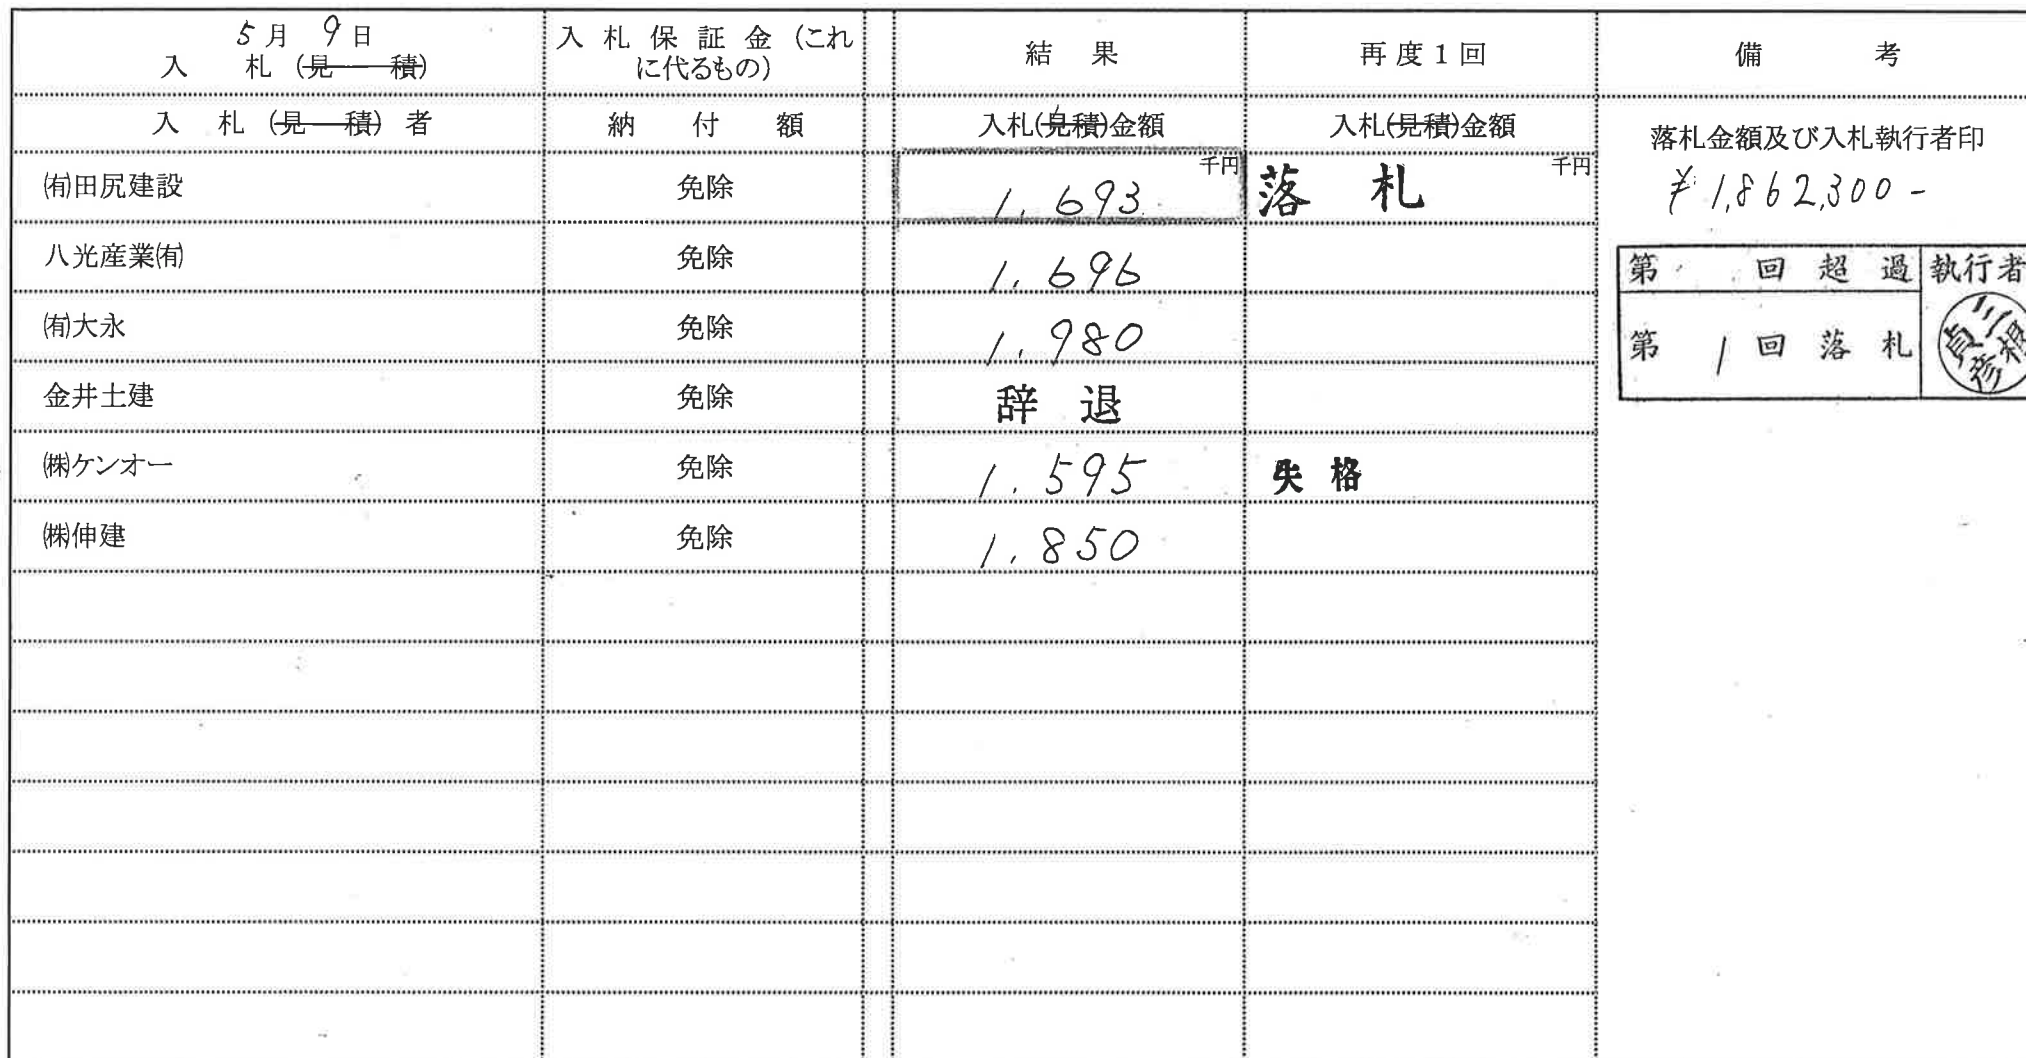 5月 9日
入 札 (見 積)
入 札 保 証 金 (これ
に代るもの)
結 果
再 度 1 回
備 考
入 札 (見 積) 者
納 付 額
入札(見積)金額
入札(見積)金額
落札金額及び入札執行者印
㈲田尻建設
免除
千円
1,693
千円
落 札
¥1,862,300-
八光産業㈲
免除
1,696
第 回 超 過
執行者
㈲大永
免除
1,980
第 1 回 落 札
三根
貞彦
金井土建
免除
辞 退
㈱ケンオー
免除
1,595
失 格
㈱伸建
免除
1,850